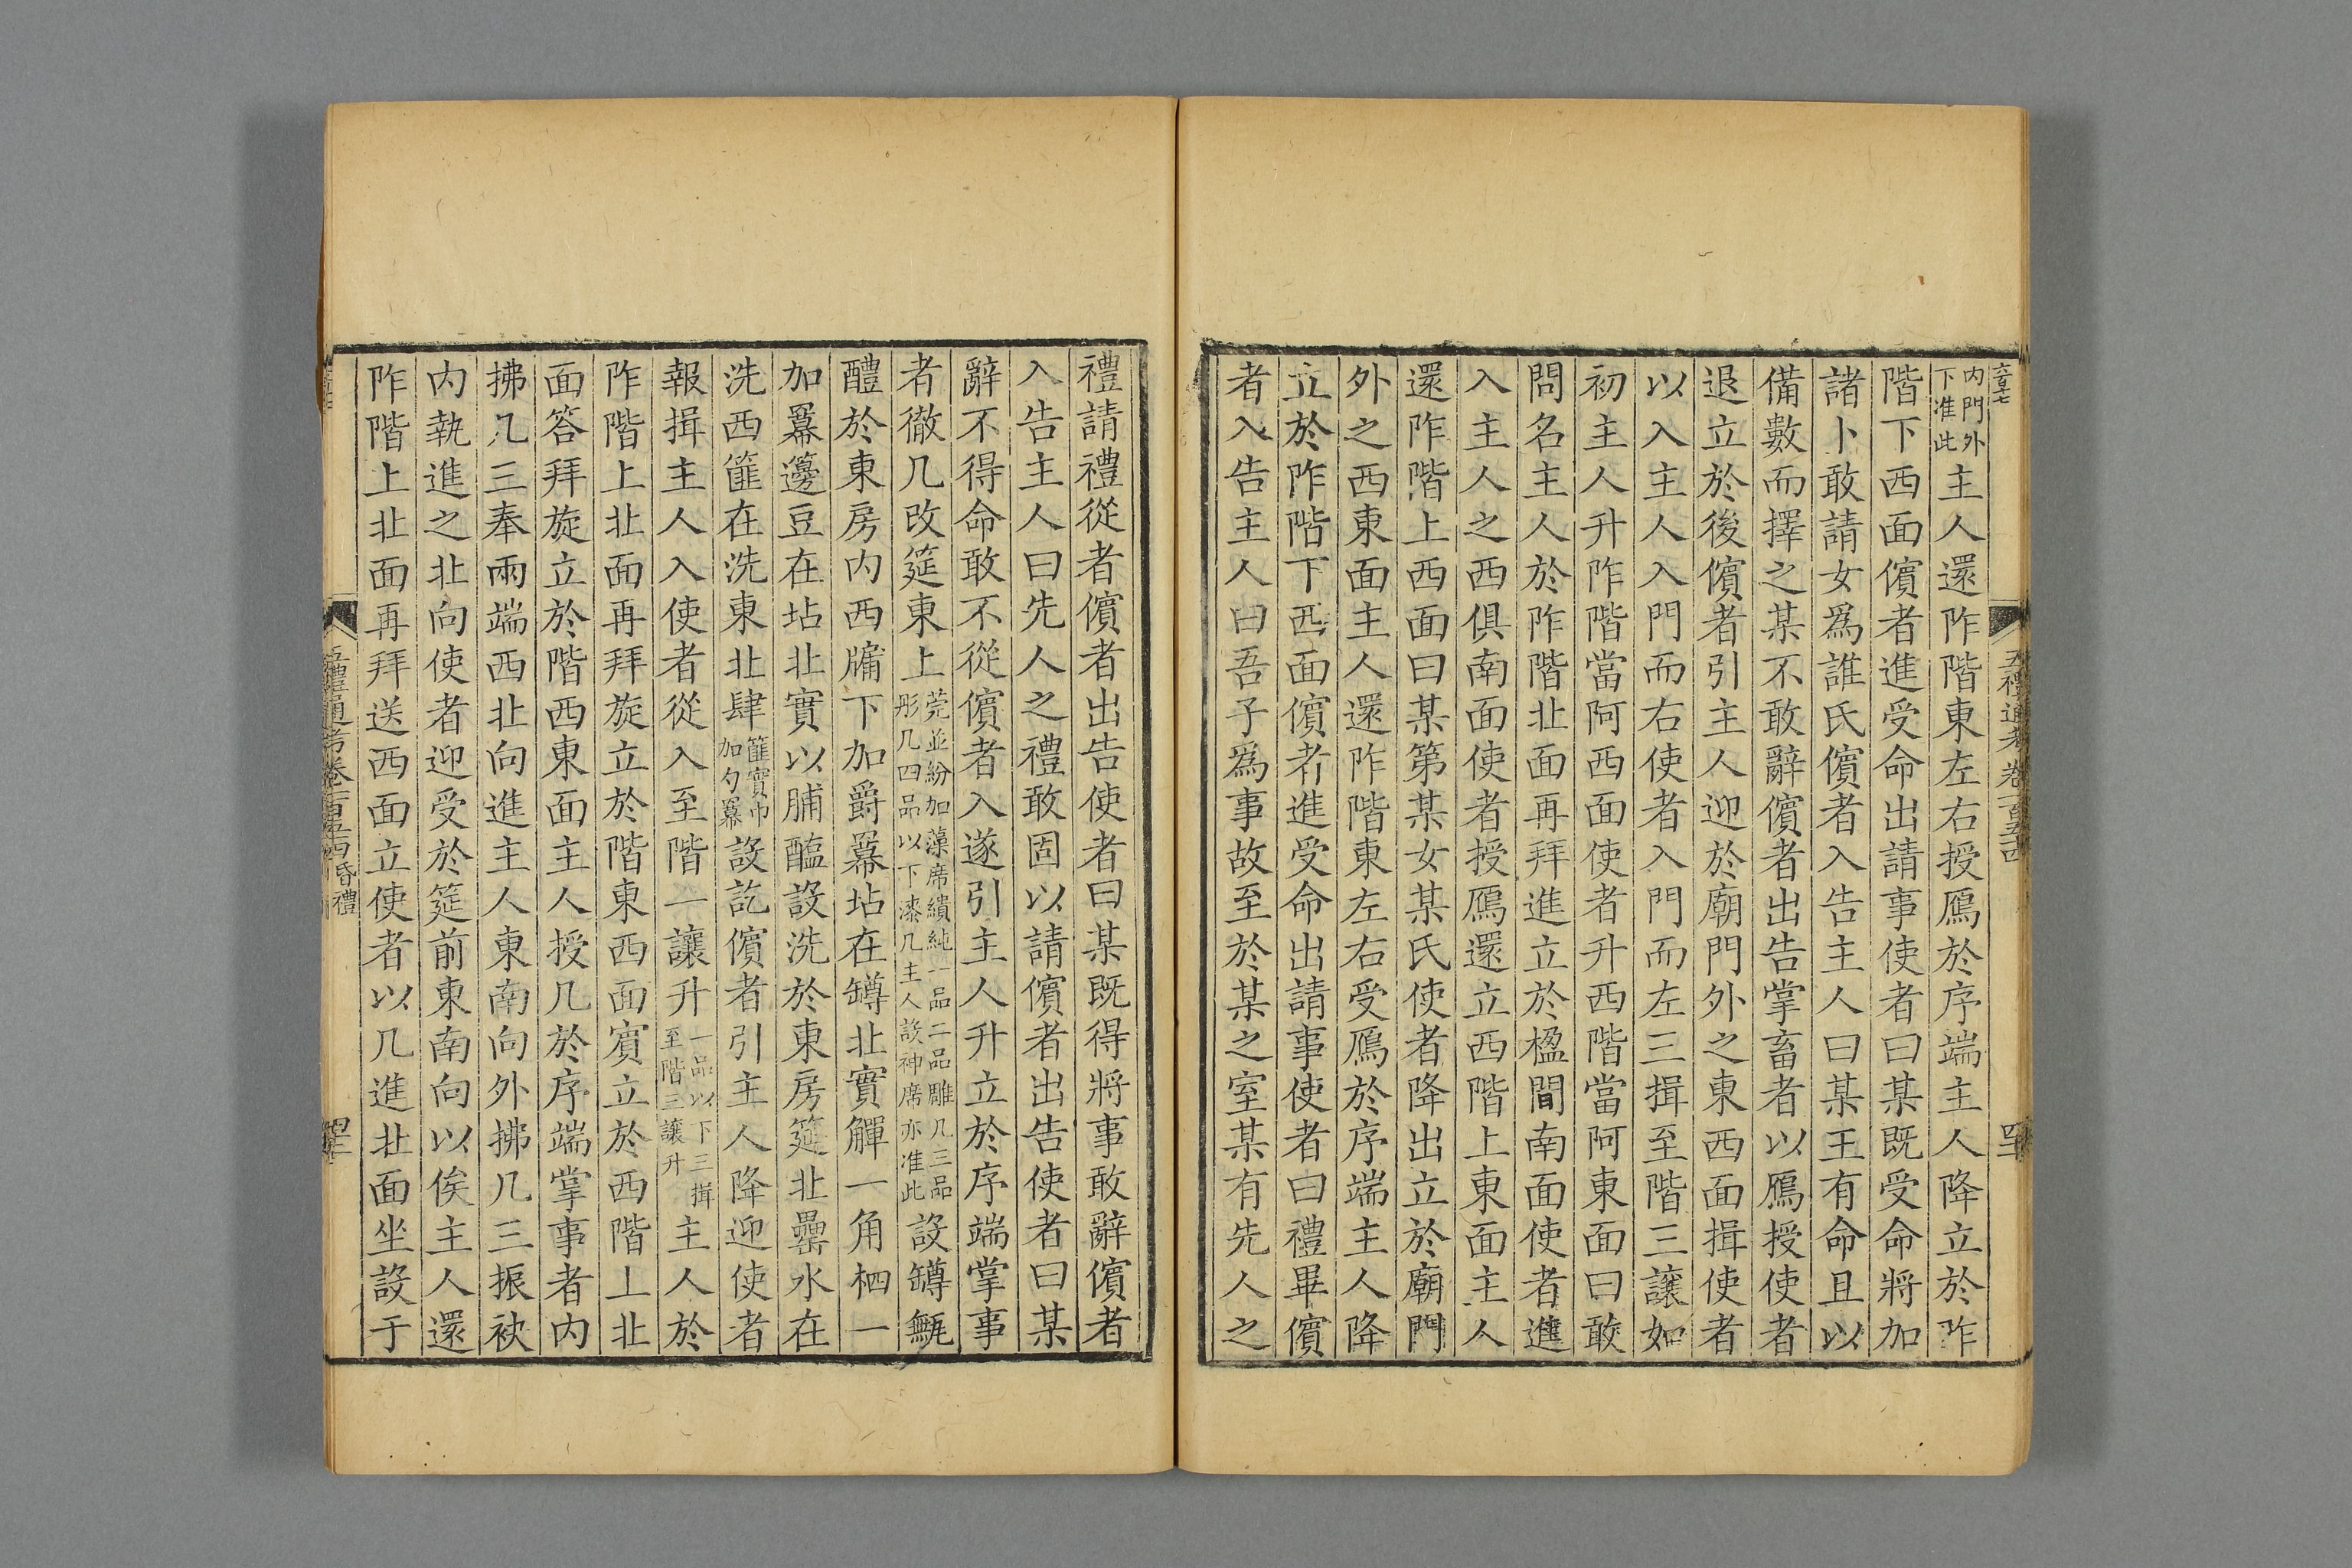 内門外下准此主人還阼階東左右授鴈於序端主人降立於阼
階下西面儐者進受命出請事使者曰某既受命將加
諸卜敢請女爲誰氏儐者入告主人曰某王有命且以
備數而擇之某不敢辭儐者出告掌畜者以鴈授使者
退立於後儐者引主人迎於廟門外之東西面揖使者
以入主人入門而右使者入門而左三揖至階三讓如
初主人升阼階當阿西面使者升西階當阿東面曰敢
問名主人於阼階北面再拜進立於楹間南面使者進
入主人之西俱南面使者授鴈還立西階上東面主人
還阼階上西面曰某第某女某氏使者降出立於廟門
外之西東面主人還阼階東左右受鴈於序端主人降
立於阼階下西面儐者進受命出請事使者曰禮畢儐
者入告主人曰吾子爲事故至於某之室某有先人之
五禮通考卷一百五十四
禮請禮從者儐者出告使者曰某既得將事敢辭儐者
入告主人曰先人之禮敢固以請儐者出告使者曰某
辭不得命敢不從儐者入遂引主人升立於序端掌事
者徹几改筵東上莞並紛加藻席繢純一品二品雕几三品彤几四品以下漆几主人設神席亦准此設罇甒
醴於東房内西牖下加爵羃坫在罇北實觶一角柶一
加羃籩豆在坫北實以脯醢設洗於東房筵北罍水在
洗西篚在洗東北肆篚實巾加勺羃設訖儐者引主人降迎使者
報揖主人入使者從入至階一讓升一品以下三揖至階三讓升主人於
阼階上北面再拜旋立於階東西面賓立於西階上北
面答拜旋立於階西東面主人授几於序端掌事者内
拂几三奉兩端西北向進主人東南向外拂几三振袂
内執進之北向使者迎受於筵前東南向以俟主人還
阼階上北面再拜送西面立使者以几進北面坐設于
五禮通考卷一百五十四昏禮